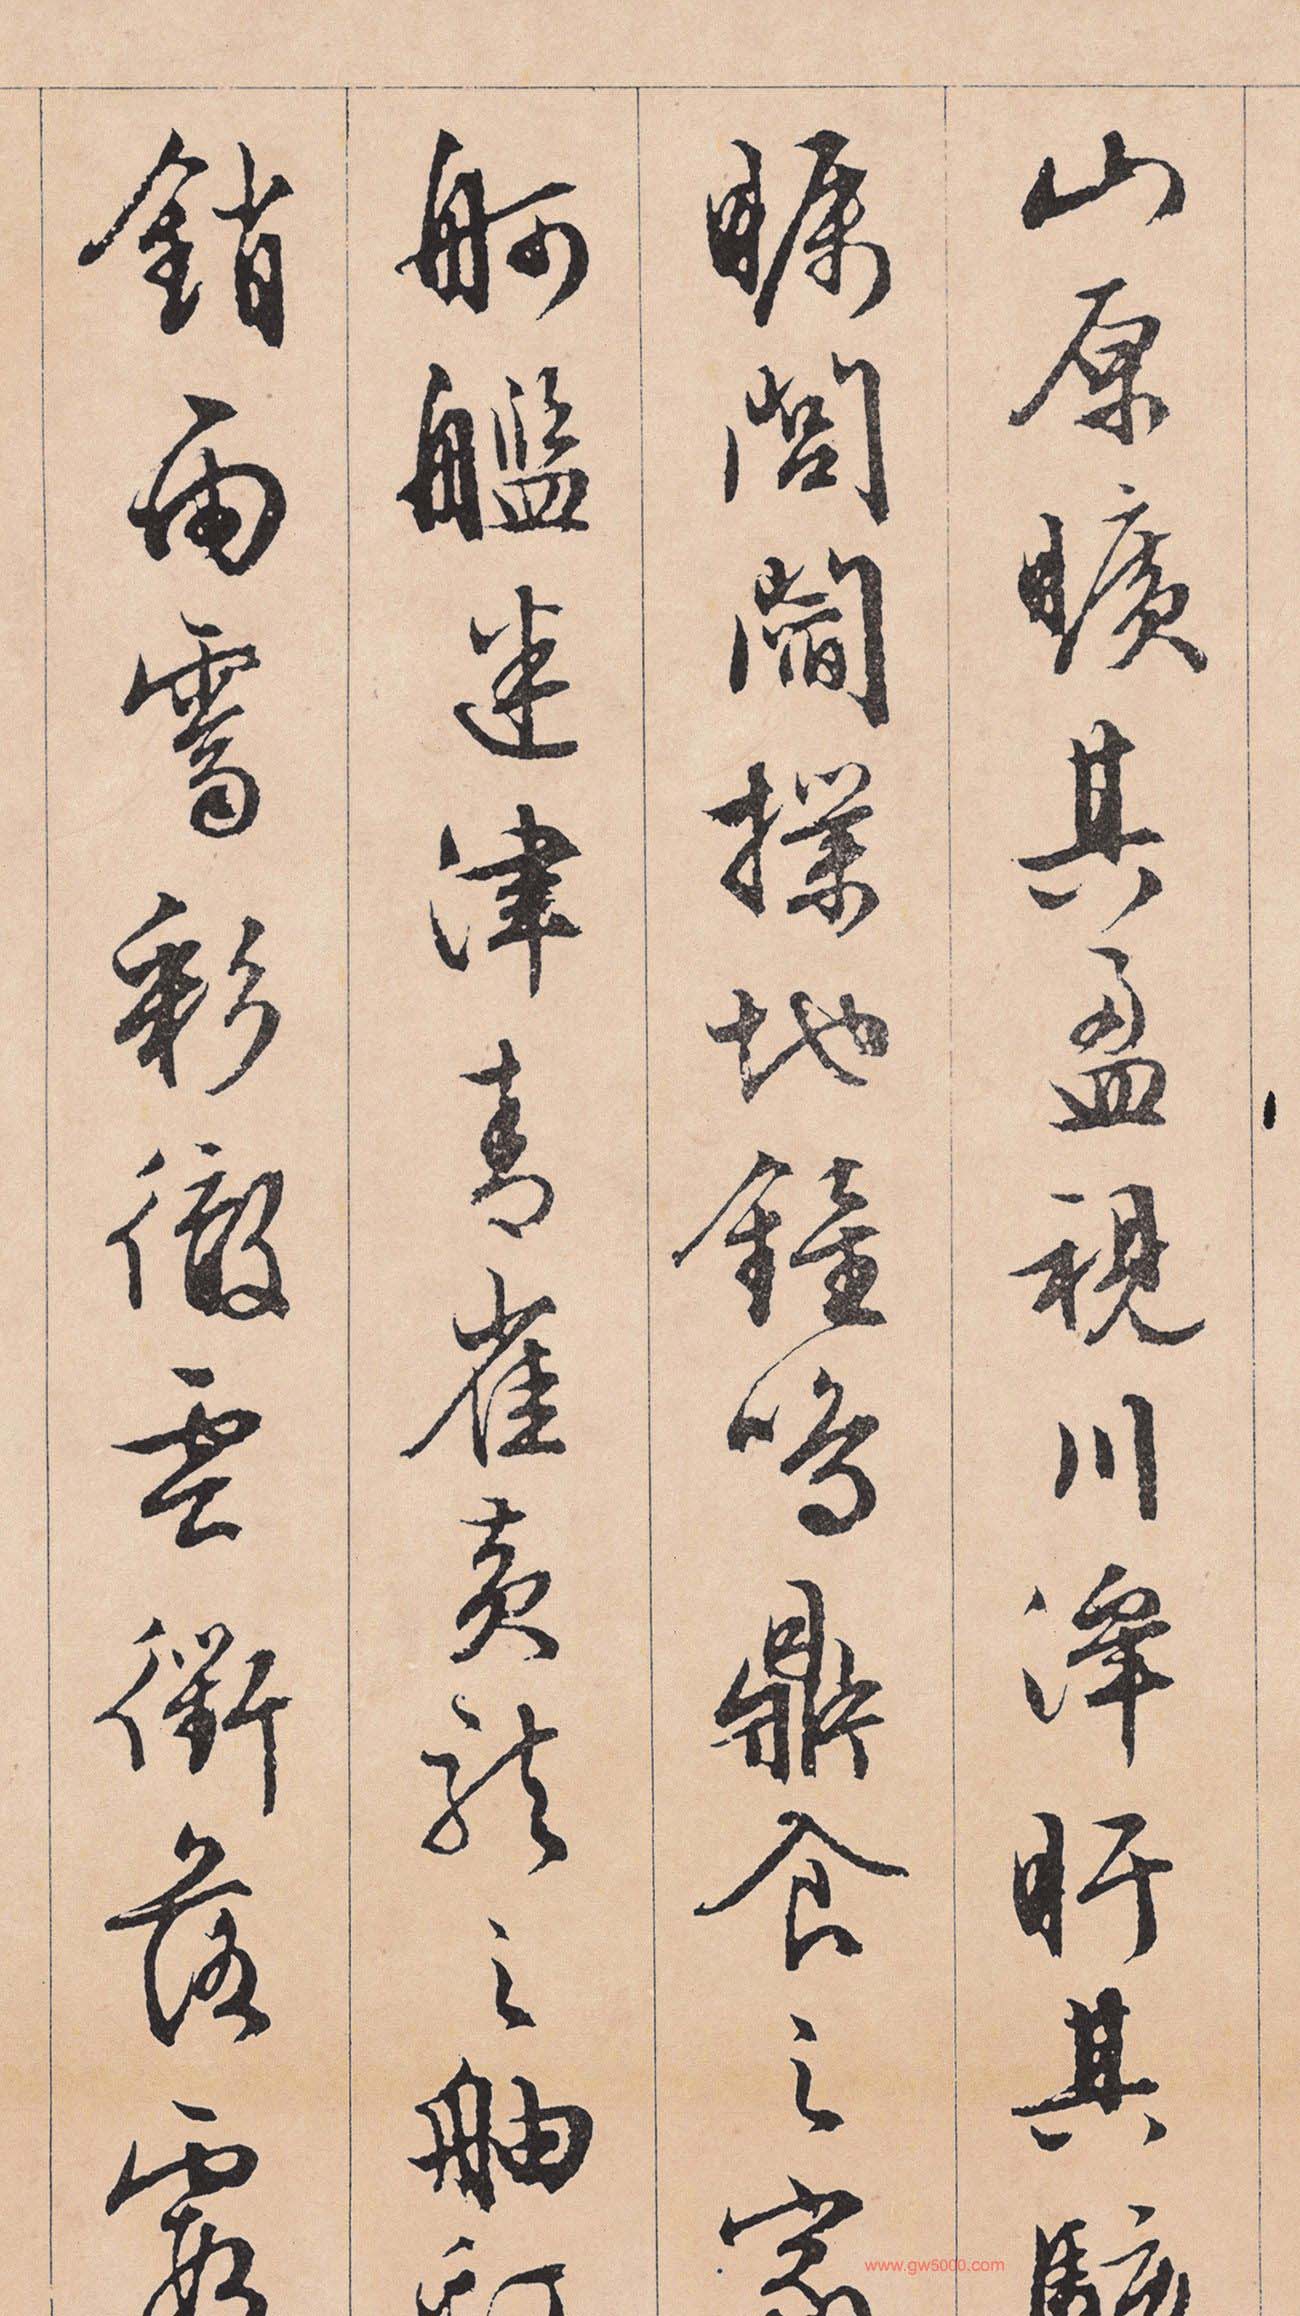 山原曠其盈視川澤盱其駭
矚閭閻撲地鐘鳴鼎食之家
舸艦迷津青雀黃龍之舳
銷雨霽彩徹雲衢落霞
www.gw5000.com